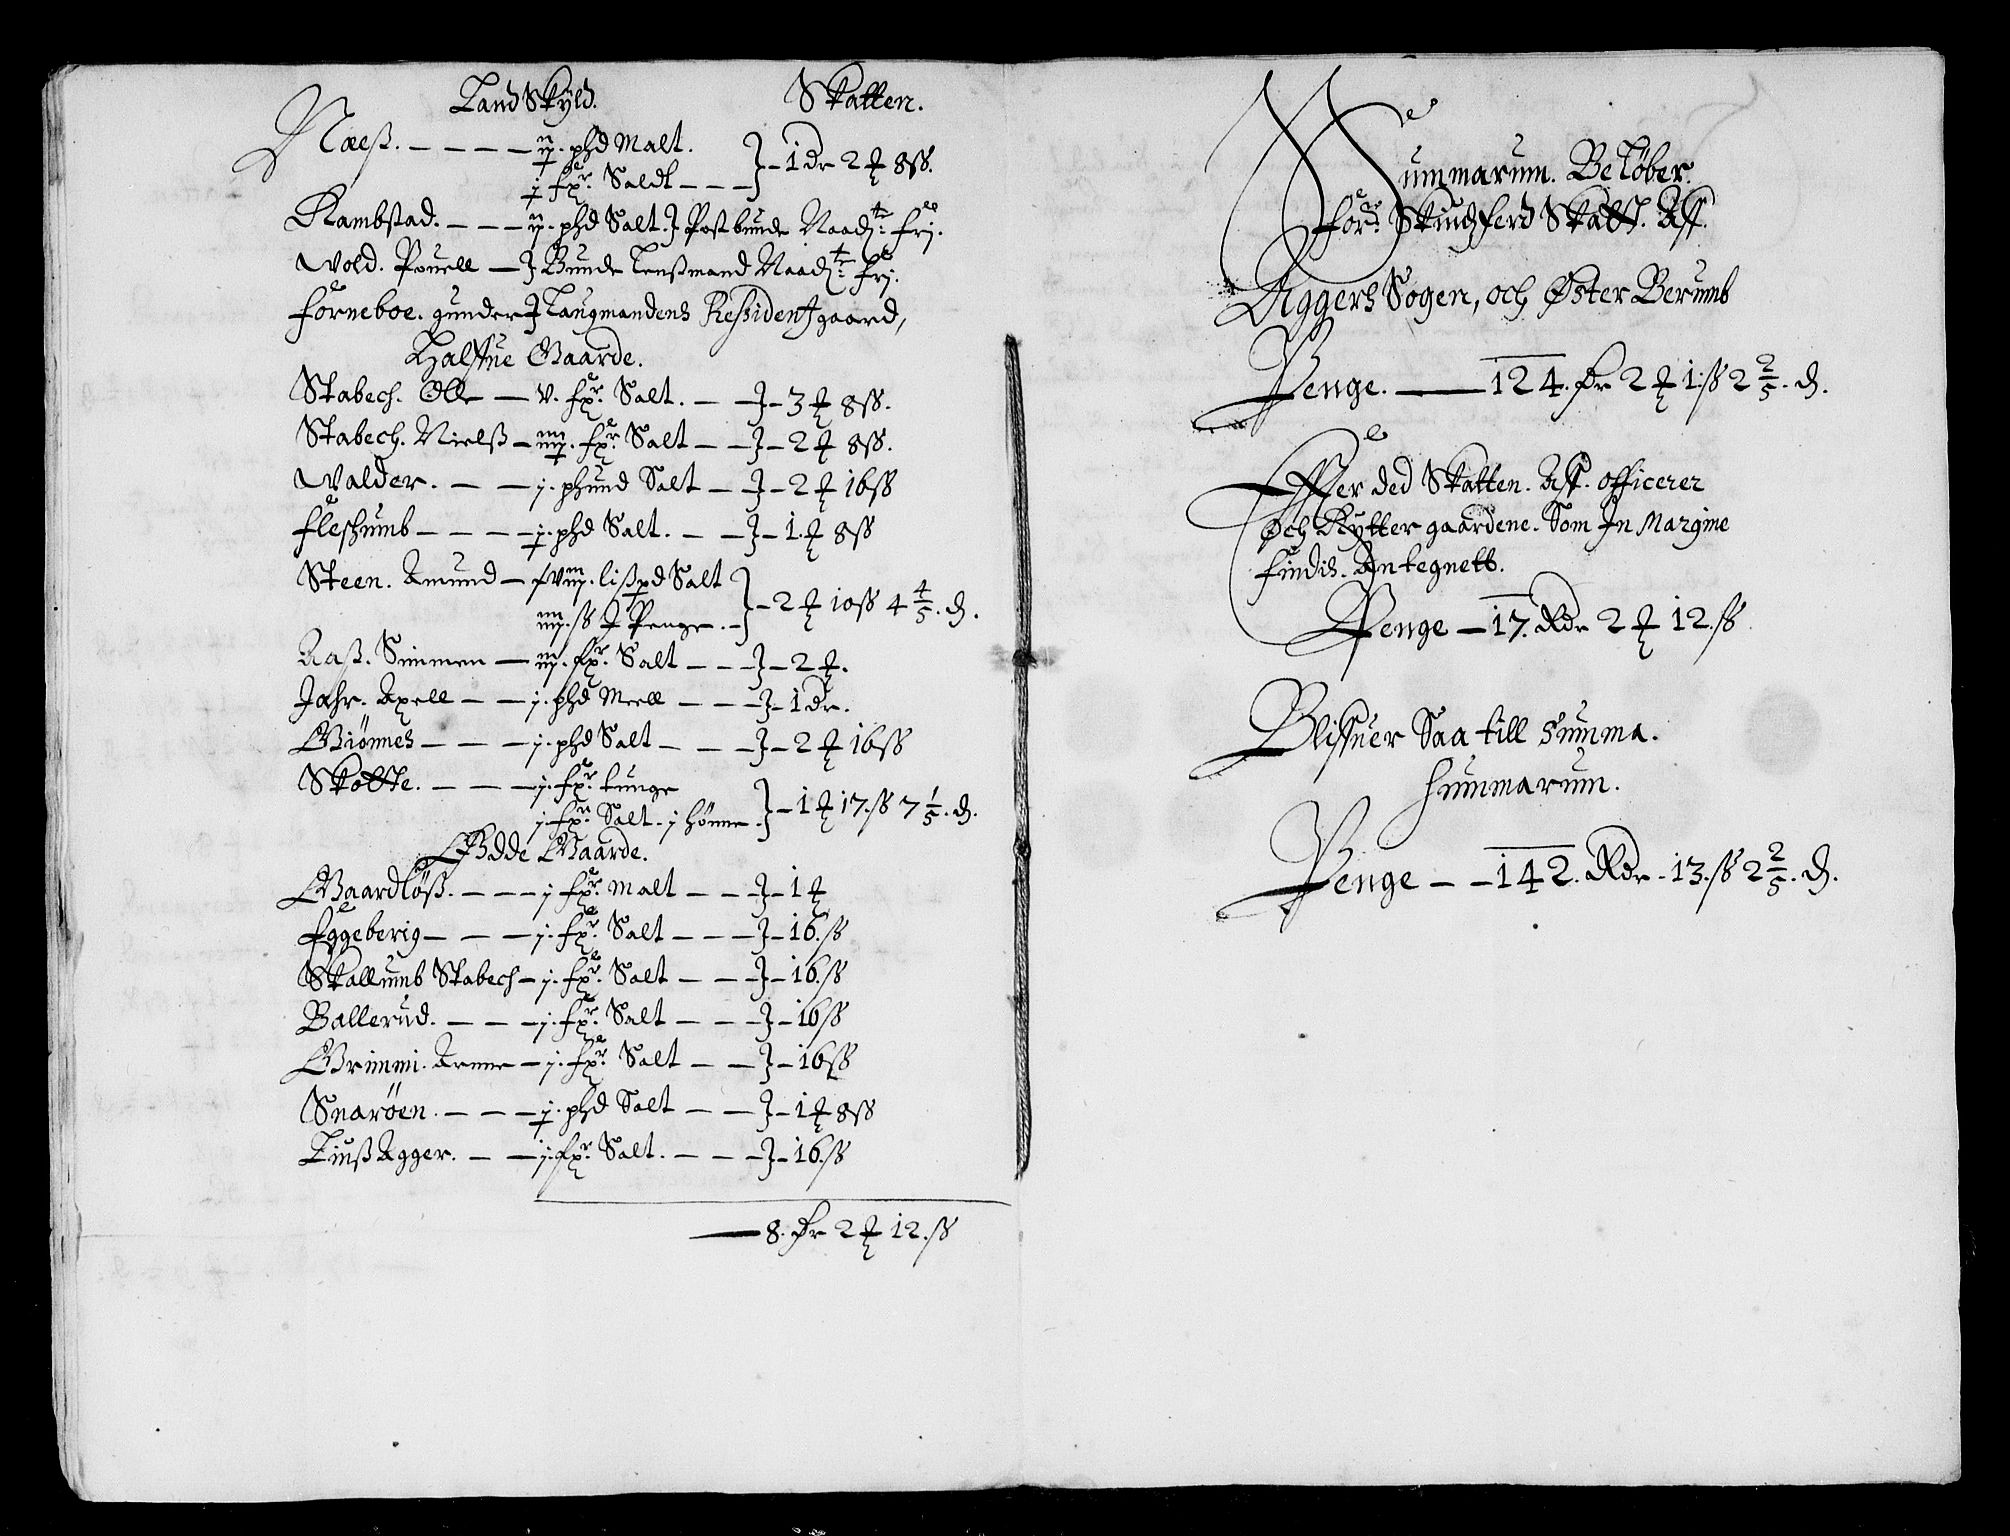 Land Skÿld. Skatten.
Næsß. — — — — ij. phd Malt.
j fxr. Saldt — — — } – 1 dr 2 ꝶ 8 ss.
Rambstad. — — — ij. phd Salt. } Postbunde Naadr: frj.
Wold. Pouell — } Bunde Lenßmand Naadr: frj.
Forneboe. gunder } Laugmandens Ressidentz gaard,
Halffue Gaarde.
Stabech. Olle — v. fxr. Salt. — — } – 3 ꝶ 8 ss.
Stabech. Nielß – iiij. fxr. Salt — — } – 2 ꝶ 8 ss.
Walder. — — j. phund Salt — } – 2 ꝶ 16 ss
Fleshumb — — — j. phd Salt. — — } – 1 ꝶ 8 ss
Steen. Amund — lißpd Salt
iiij. ss J Penge. — } – 2 ꝶ 10 ss 4 4/5. d.
Aaß. Simmen — iij. fxr. Salt — — } – 2 ꝶ.
Jahr. Axell — — j. phd Meell — — — } – 1 dr.
Giønnes — — — j. phd Salt — — — } – 2 ꝶ 16 ss
Skolte. — — — j. fxr. tunge
j. fxr. Salt. j hønne. } – 1 ꝶ 17. ss 7 1/5. d.
Ødde Gaarde.
Gaardløß. — — — j fxr. Malt — — } – 1 ꝶ
Eggeberig — — — j. fxr. Salt — — — } – 16. ss
Skallumb Stabech – j. fxr. Salt — — } – 16. ss
Ballerud. — — — j. fxr. Salt — — — } – 16 ss
Grimmi. Arnne — j. fxr. Salt — — } – 16 ss
Snarøen. — — — j. phd Salt — — } – 1 ꝶ 8 ss
Liuß Agger. — — j. fxr. Salt. — — — } – 16. ss
— 8. dr 2 ꝶ 12. ss
Summarum. Beløber.
forne Skindferd Skatt. Aff.
Aggers Sogen, och Øster Berumb
Penge. — 124. dr 2 ꝶ 1. ss 2 2/5. d.
Effter ded Skatten. Aff. officerer
Och Rytter gaardene. Som Jn Margine
findis. Antegnett.
Penge — 17. Rdr 2 ꝶ 12. ss
Bliffuer Saa till Summa.
Summarum.
Penge — — 142. Rdr – 13. ss 2 2/5. d.